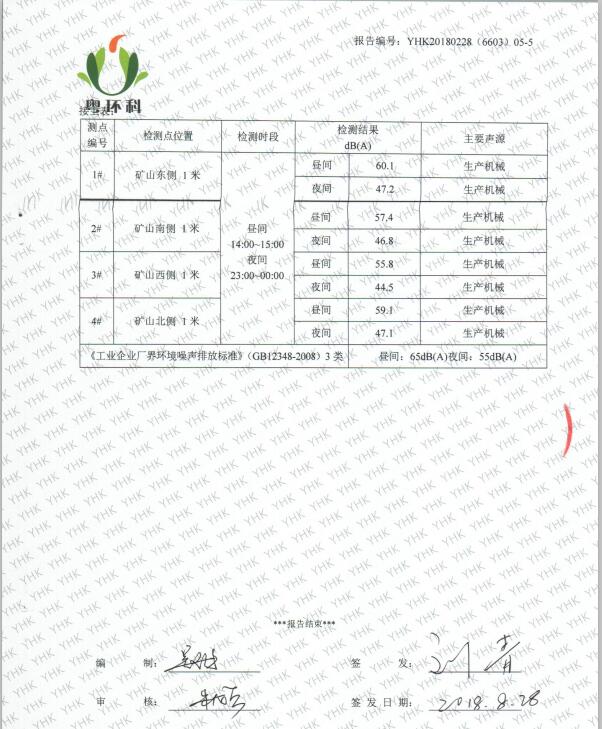 报告编号：YHK20180228（6603）05-5
粤环科
接上表：
测点编号 检测点位置 检测时段 检测结果 dB(A) 主要声源
1# 矿山东侧 1 米 昼间 60.1 生产机械
夜间 47.2 生产机械
2# 矿山南侧 1 米 昼间 57.4 生产机械
昼间 14:00~15:00 夜间 23:00~00:00
夜间 46.8 生产机械
3# 矿山西侧 1 米 昼间 55.8 生产机械
夜间 44.5 生产机械
4# 矿山北侧 1 米 昼间 59.1 生产机械
夜间 47.1 生产机械
《工业企业厂界环境噪声排放标准》（GB12348-2008）3 类 昼间：65dB(A)夜间：55dB(A)
***报告结束***
编 制： 签 发：
审 核： 签发日期：2018.8.28